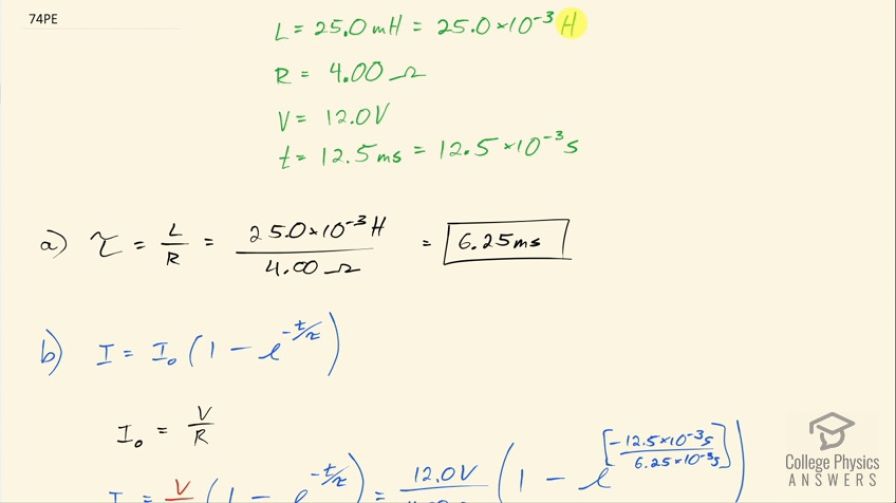 74PE
L = 25.0 mH = 25.0×10⁻³ H
R = 4.00 Ω
V = 12.0V
t = 12.5 ms = 12.5×10⁻³ s
a) τ = L/R = 25.0×10⁻³ H / 4.00 Ω = 6.25 ms
b) I = I₀ (1 − e^(−t/τ))
I₀ = V/R
I = V (1 − e^(−t/τ)) = 12.0V (1 − e^[−12.5×10⁻³ s / 6.25×10⁻³ s])
College Physics
ANSWERS